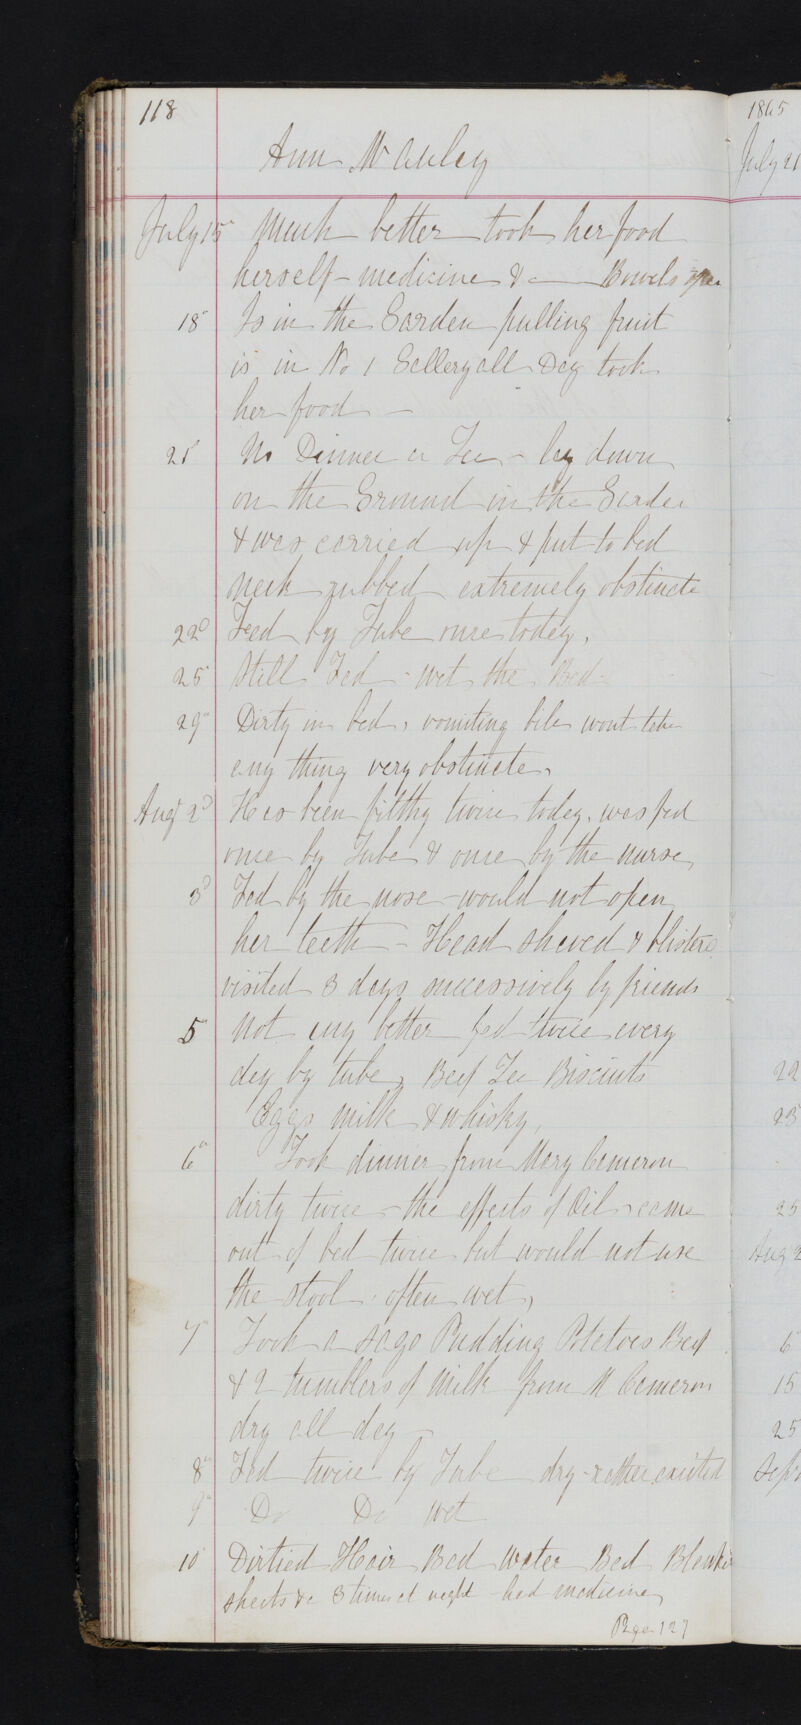 118
Ann McAuley
July 15 Much better took her food
herself - medicine &c Bowels open
18 Is in the Garden pulling fruit
is in No 1 Gallery all Day took
her food -
21 No Dinner or Tea - lay down
on the Ground in the Garden
& was carried up & put to bed
neck rubbed extremely obstinate
22d Fed by Tube once today.
25 Still Fed - wet the Bed -
29 Dirty in bed, vomiting bile wont take
any thing very obstinate.
Augt 2d Has been filthy twice today. was fed
once by Tube & once by the nurse,
3d Fed by the nose - would not open
her teeth - Head shaved & blistered
visited 3 days successively by friends
5 Not any better fed twice every
day by tube, Beef Tea Biscuits
Eggs milk & whisky,
6 Took dinner from Mary Cameron
dirty twice - the effects of Oil - came
out of bed twice but would not use
the stool - often wet,
7 Took a sago Pudding Potatoes Beef
& 2 tumblers of Milk from M Cameron
dry all day -
8 Fed twice by Tube dry - rather excited
9 Do Do wet
10 Dirtied Hair Bed Water Bed Blankets
sheets &c 3 times at night - had medicine,
Page 127
1865
July 21
22
25
Aug 2
6
15
25
Sept